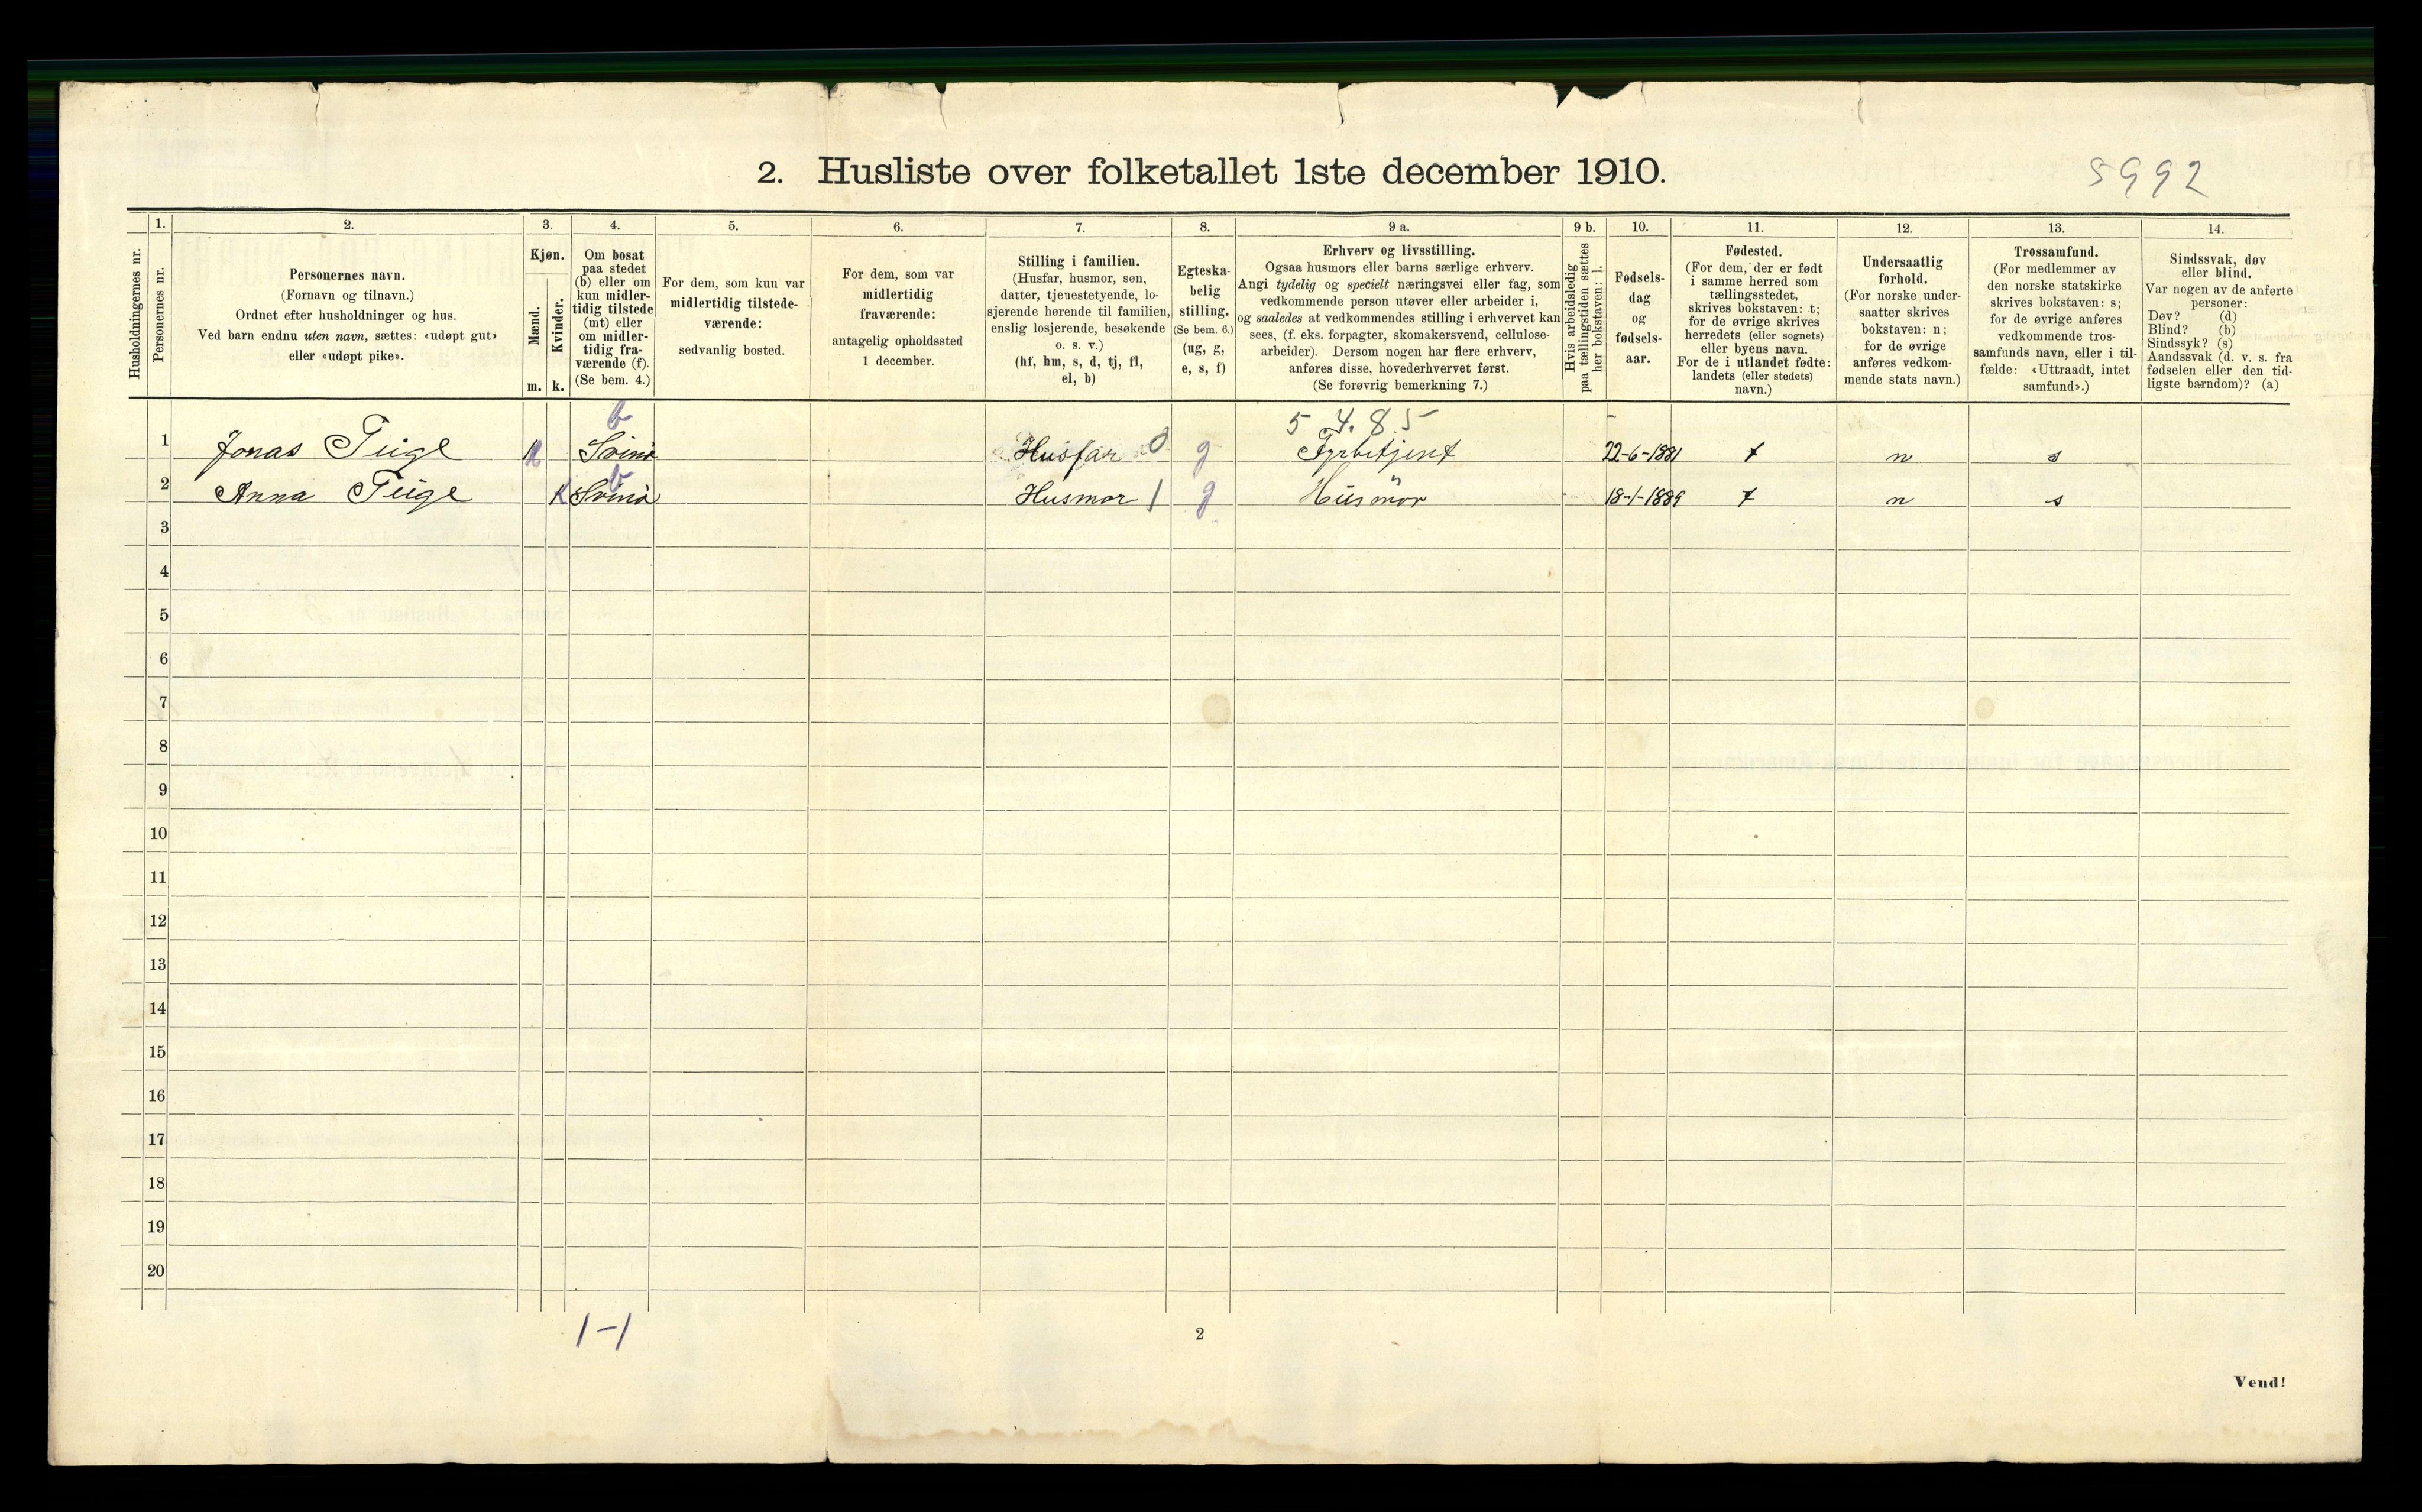 2. Husliste over folketallet 1ste december 1910.
5992
Husholdningernes nr.
1.
Personernes nr.
2.
Personernes navn.
(Fornavn og tilnavn.)
Ordnet efter husholdninger og hus.
Ved barn endnu uten navn, sættes: «udøpt gut»
eller «udøpt pike».
3.
Kjøn.
Mænd.
Kvinder.
m. k.
4.
Om bosat
paa stedet
(b) eller om
kun midler-
tidig tilstede
(mt) eller
om midler-
tidig fra-
værende (f).
(Se bem. 4.)
5.
For dem, som kun var
midlertidig tilstede-
værende:
sedvanlig bosted.
6.
For dem, som var
midlertidig
fraværende:
antagelig opholdssted
1 december.
7.
Stilling i familien.
(Husfar, husmor, søn,
datter, tjenestetyende, lo-
sjerende hørende til familien,
enslig losjerende, besøkende
o. s. v.)
(hf, hm, s, d, tj, fl,
el, b)
8.
Egteska-
belig
stilling.
(Se bem. 6.)
(ug, g,
e, s, f)
9 a.
Erhverv og livsstilling.
Ogsaa husmors eller barns særlige erhverv.
Angi tydelig og specielt næringsvei eller fag, som
vedkommende person utøver eller arbeider i,
og saaledes at vedkommendes stilling i erhvervet kan
sees, (f. eks. forpagter, skomakersvend, cellulose-
arbeider). Dersom nogen har flere erhverv,
anføres disse, hovederhvervet først.
(Se forøvrig bemerkning 7.)
9 b.
Hvis arbeidsledig
paa tællingstiden sættes
her bokstaven: l.
10.
Fødsels-
dag
og
fødsels-
aar.
11.
Fødested.
(For dem, der er født
i samme herred som
tællingsstedet,
skrives bokstaven: t;
for de øvrige skrives
herredets (eller sognets)
eller byens navn.
For de i utlandet fødte:
landets (eller stedets)
navn.)
12.
Undersaatlig
forhold.
(For norske under-
saatter skrives
bokstaven: n;
for de øvrige
anføres vedkom-
mende stats navn.)
13.
Trossamfund.
(For medlemmer av
den norske statskirke
skrives bokstaven: s;
for de øvrige anføres
vedkommende tros-
samfunds navn, eller i til-
fælde: «Uttraadt, intet
samfund».)
14.
Sindssvak, døv
eller blind.
Var nogen av de anførte
personer:
Døv? (d)
Blind? (b)
Sindssyk? (s)
Aandssvak (d. v. s. fra
fødselen eller den tid-
ligste barndom)? (a)
b 5 4.85
1 Jonas Teige Svinö Husfar 0 g Fyrbetjent 22-6-1881 t n s
b
2 Anna Teige K Svinö Husmor 1 g Husmor 18-1-1889 t n s
3
4
5
6
7
8
9
10
11
12
13
14
15
16
17
18
19
20
1-1
2
Vend!